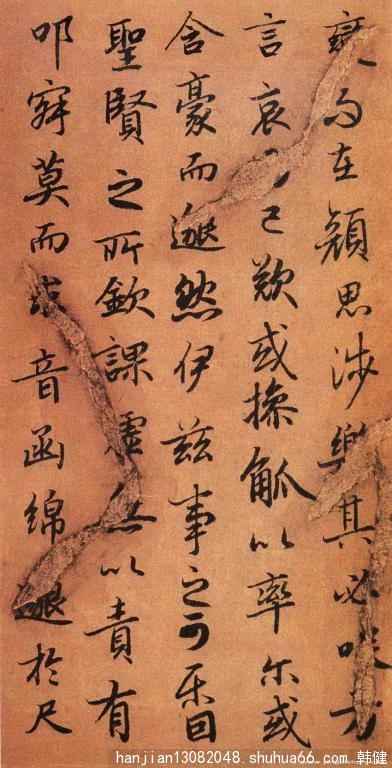 變而在顏思涉樂其必咲方
言哀已歎或操觚以率尔或
含豪而邈然伊茲事之可樂固
聖賢之所欽課虛無以責有
叩寂莫而求音函綿邈於尺
hanjian13082048. shuhua66. com 韩健